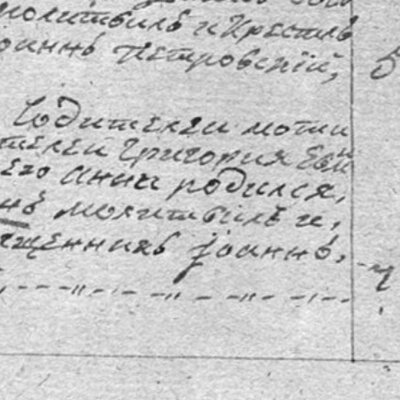 молитвилъ и крестилъ
оаннъ Петровскій,
5
Родителеи моти
телеи Григория Еви
его анны родился,
нъ молитвилъ и,
ященникъ Іоаннъ.